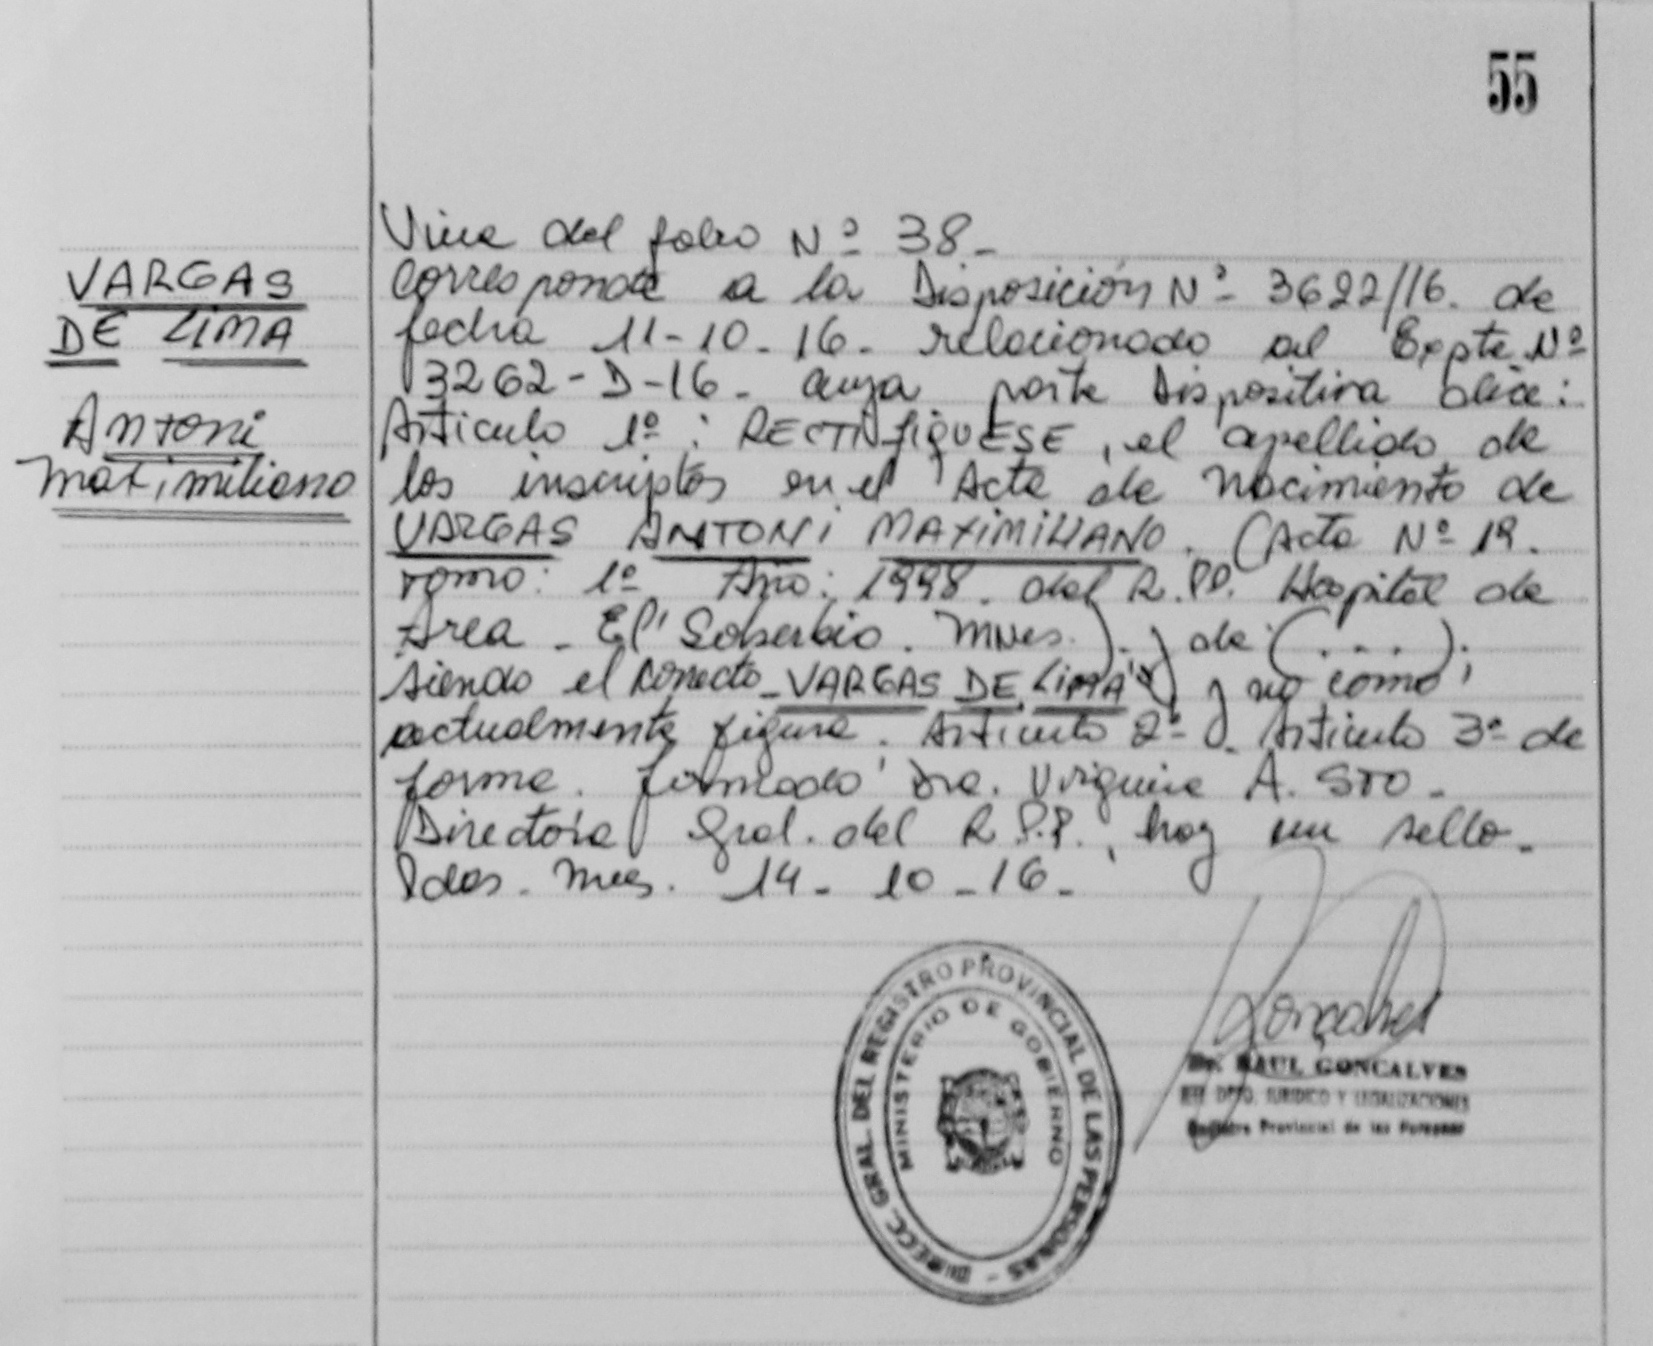 55
VARGAS
DE LIMA
Antoni
Maximiliano
Viene del folio Nº 38-
Corresponde a la Disposición Nº 3622/16. de
fecha 11-10-16- relacionado al Expte Nº
3262-D-16- cuya parte Dispositiva dice:
Artículo 1º: RECTIFIQUESE, el apellido de
los inscriptos en el Acta de Nacimiento de
VARGAS ANTONI MAXIMILIANO. (Acta Nº 19.
Tomo: 1º Año: 1998. del R.PP. Hospital de
Area - El Soberbio. Mnes.). y de (....);
siendo el correcto "VARGAS DE LIMA" y no como
actualmente figura. Artículo 2º y Artículo 3º de
forma. firmado Dra. A. STO-
Directora Gral. del R.P.P., hay un sello-
Pdas. Mnes. 14-10-16-
DIRECC. GRAL. DEL REGISTRO PROVINCIAL DE LAS PERSONAS -
MINISTERIO DE GOBIERNO
Goncalves
Dr. RAUL GONCALVES
DPTO. JURIDICO Y LEGALIZACIONES
Registro Provincial de las Personas